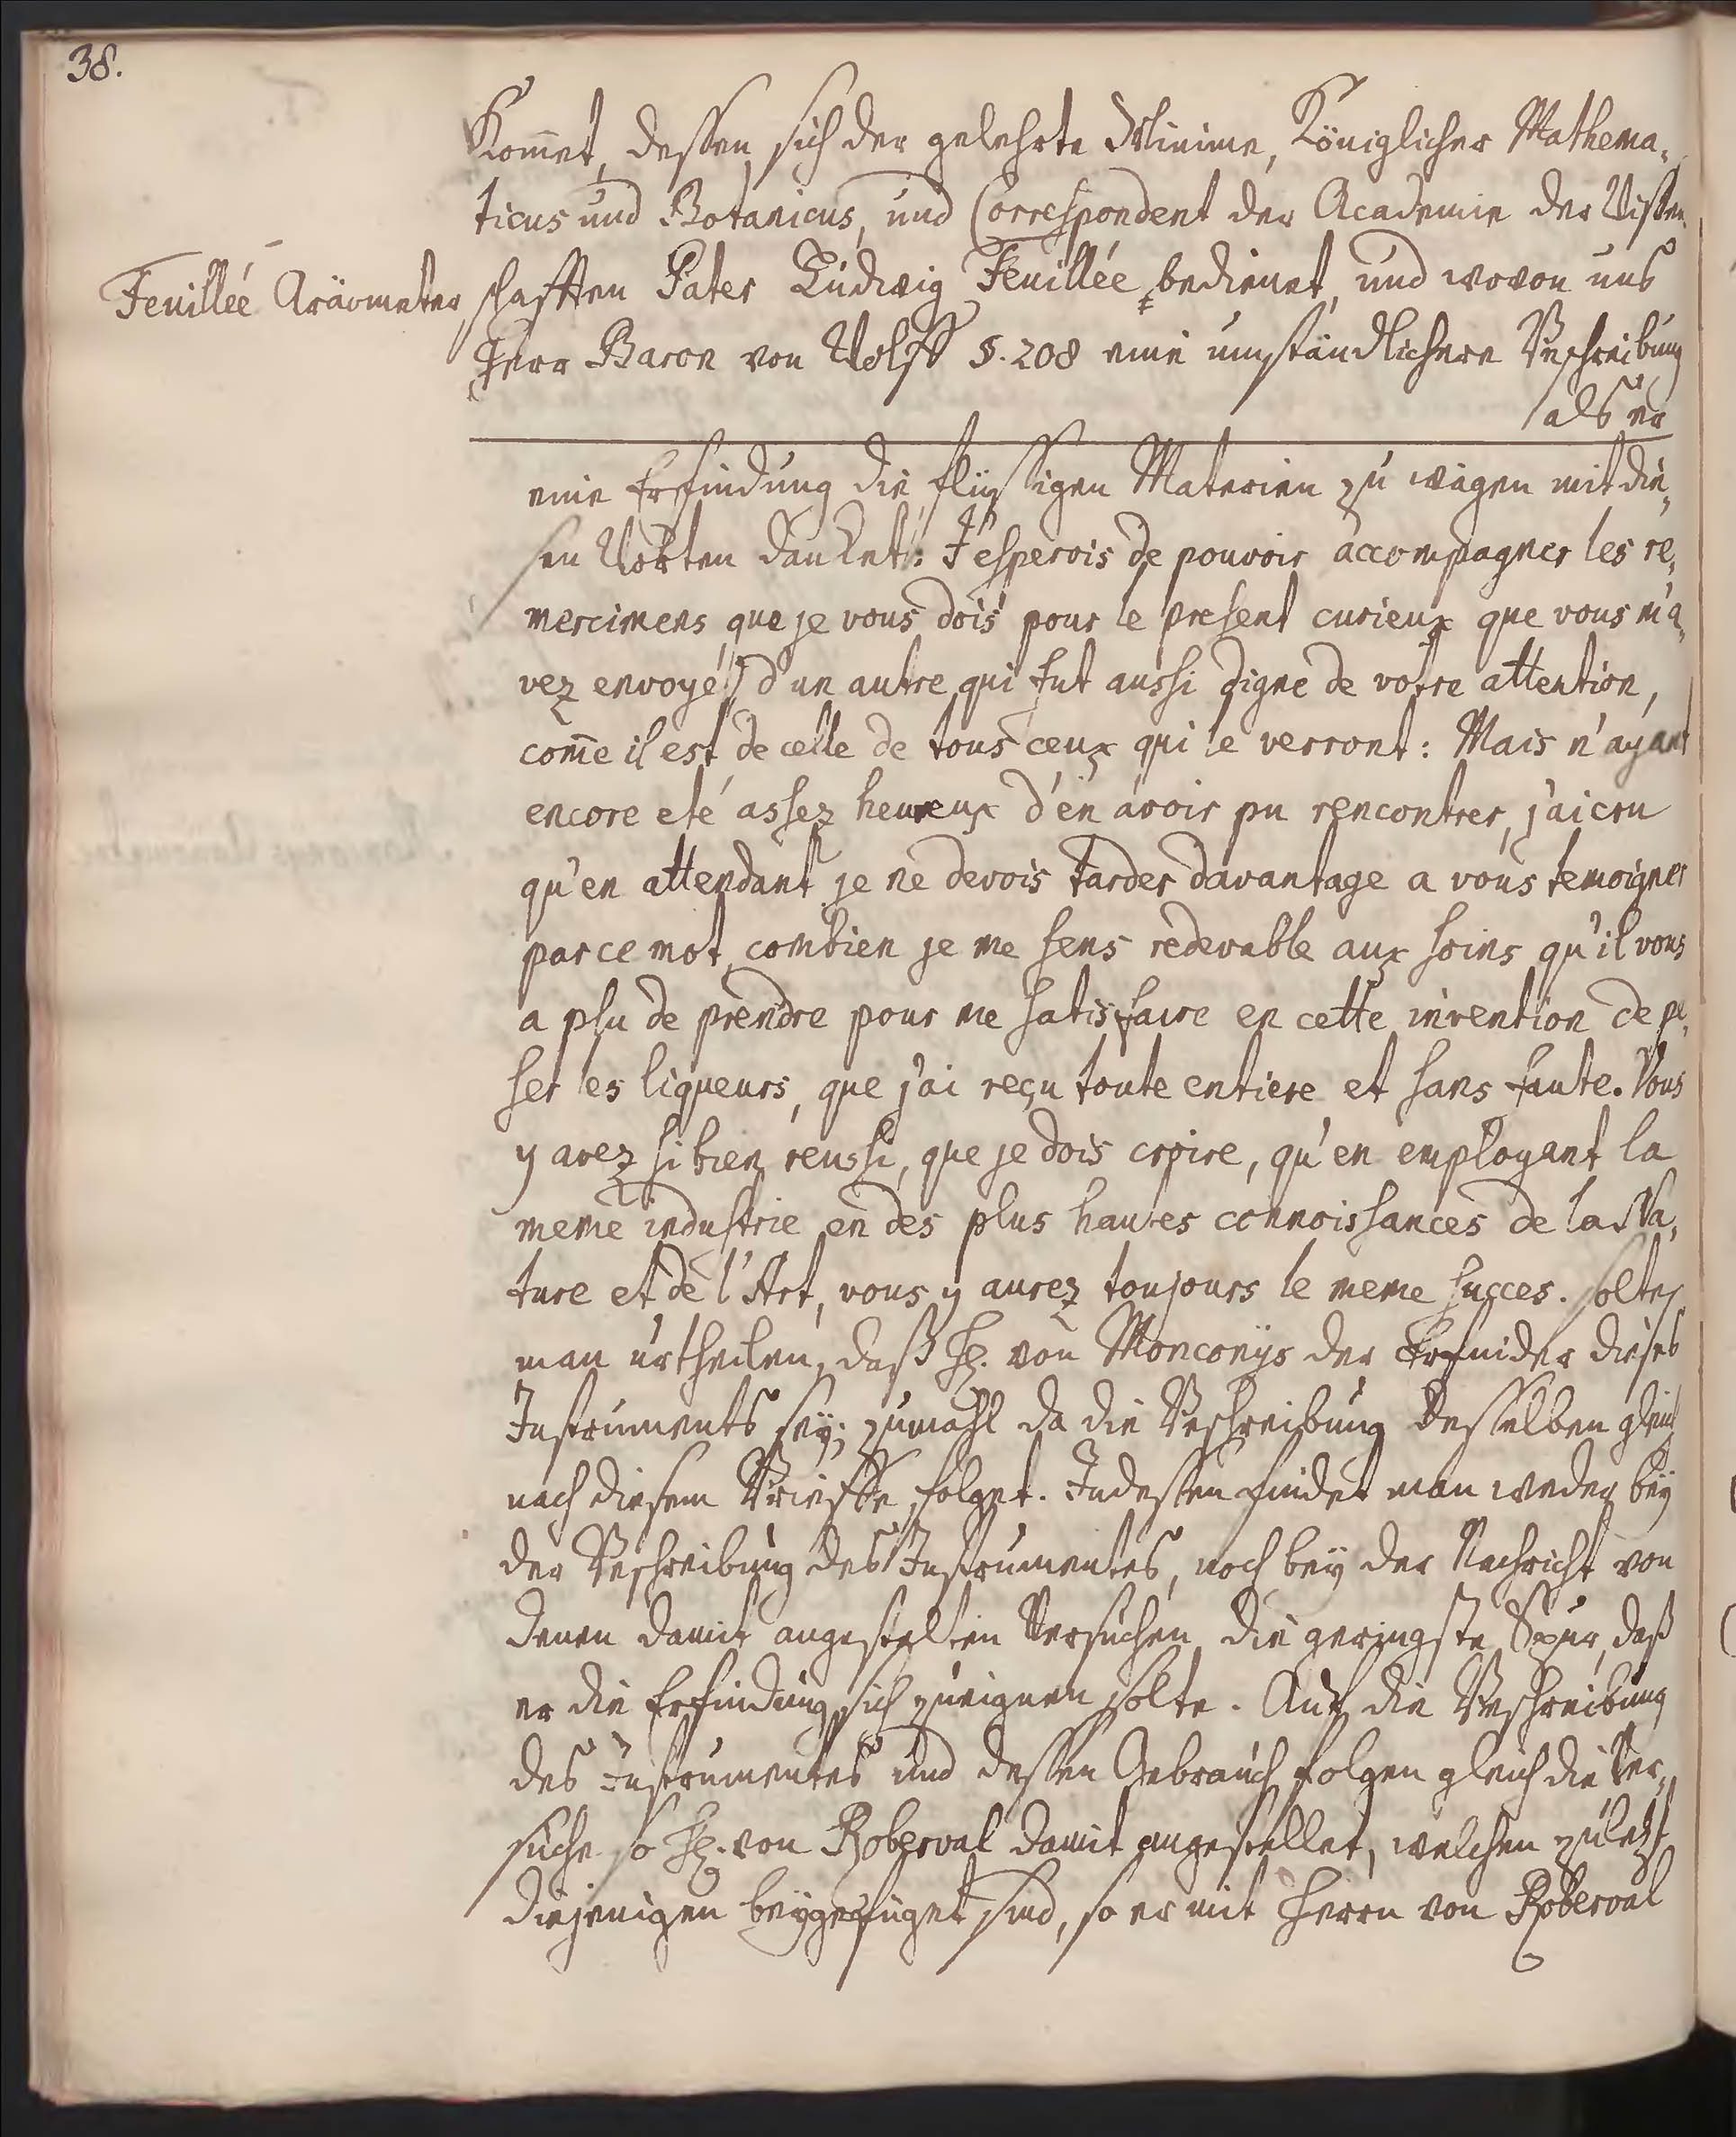 38.
Kom̄et, dessen sich der gelehrte Minime, Königlicher Mathema-
ticus und Botanicus, und Correspondent der Academie der Wissen-
Feuilleé Aräometer
schafften Pater Ludwig Feuillée bedienet, und wovon uns
Herr Baron von Wolff §. 208 eine umständlichere Beschreibung
als er
eine Erfindung die flüssigen Materien zu wägen mit die-
sen Worten dancket: J'esperois de pouvoir accompagner les re-
mercimens que je vous dois pour le present curieux que vous m'a-
vez envoyé, d'un autre qui fut aussi digne de votre attention,
com̄e il est de celle de tous ceux qui le verront: Mais n'ayant
encore eté assez heureux d'en avoir pu rencontrer, j'ai cru
qu'en attendant je ne devois tarder davantage a vous temoigner
par ce mot, combien je me sens redevable aux soins qu'il vous
a plu de prendre pour me satisfaire en cette invention de pe-
ser les liqueurs, que j'ai reçu toute entiere et sans faute. Vous
y avez si bien reussi, que je dois croire, qu'en employant la
meme industrie en des plus hautes connoissances de la Na-
ture et de l'Art, vous y aurez toujours le meme succes. solte
man urtheilen, daß H. von Monconÿs der Erfinder dieses
Instruments seÿ; zumahl da die Beschreibung desselben gleich
nach diesem Brieffe folget. Indessen findet man weder beÿ
der Beschreibung des Instrumentes, noch beÿ der Nachricht von
denen damit angestelten Versuchen die geringste Spur, daß
er die Erfindung sich zueignen solte. Auf die Beschreibung
des Instrumentes und dessen Gebrauch folgen gleich die Ver-
suche so H. von Roberval damit angestellet, welchen zuletzt
diejenigen beÿgefüget sind, so er mit Herrn von Roberval